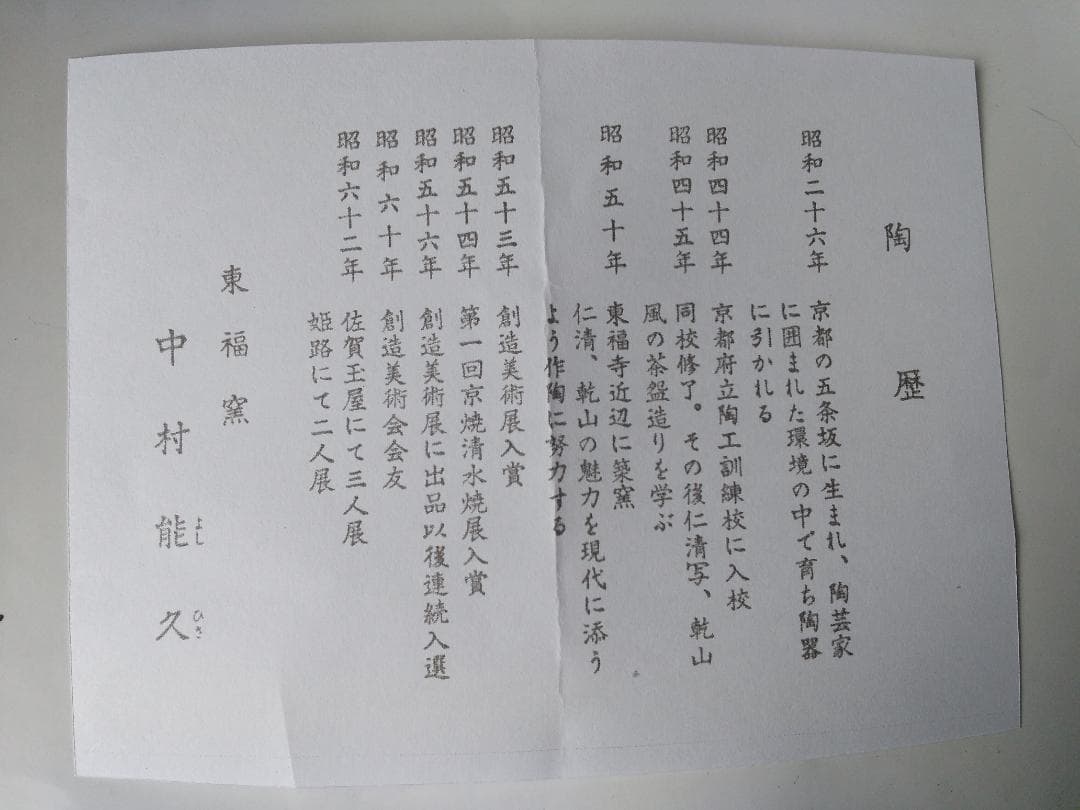 陶歴
昭和二十六年 京都の五条坂に生まれ、陶芸家
に囲まれた環境の中で育ち陶器
に引かれる
昭和四十四年 京都府立陶工訓練校に入校
昭和四十五年 同校修了。その後仁清写、乾山
風の茶盌造りを学ぶ
昭和五十年 東福寺近辺に築窯
仁清、乾山の魅力を現代に添う
よう作陶に努力する
昭和五十三年 創造美術展入賞
昭和五十四年 第一回京焼清水焼展入賞
昭和五十六年 創造美術展に出品以後連続入選
昭和六十年 創造美術会会友
昭和六十二年 佐賀玉屋にて三人展
姫路にて二人展
東福窯
中村能久
よしひさ